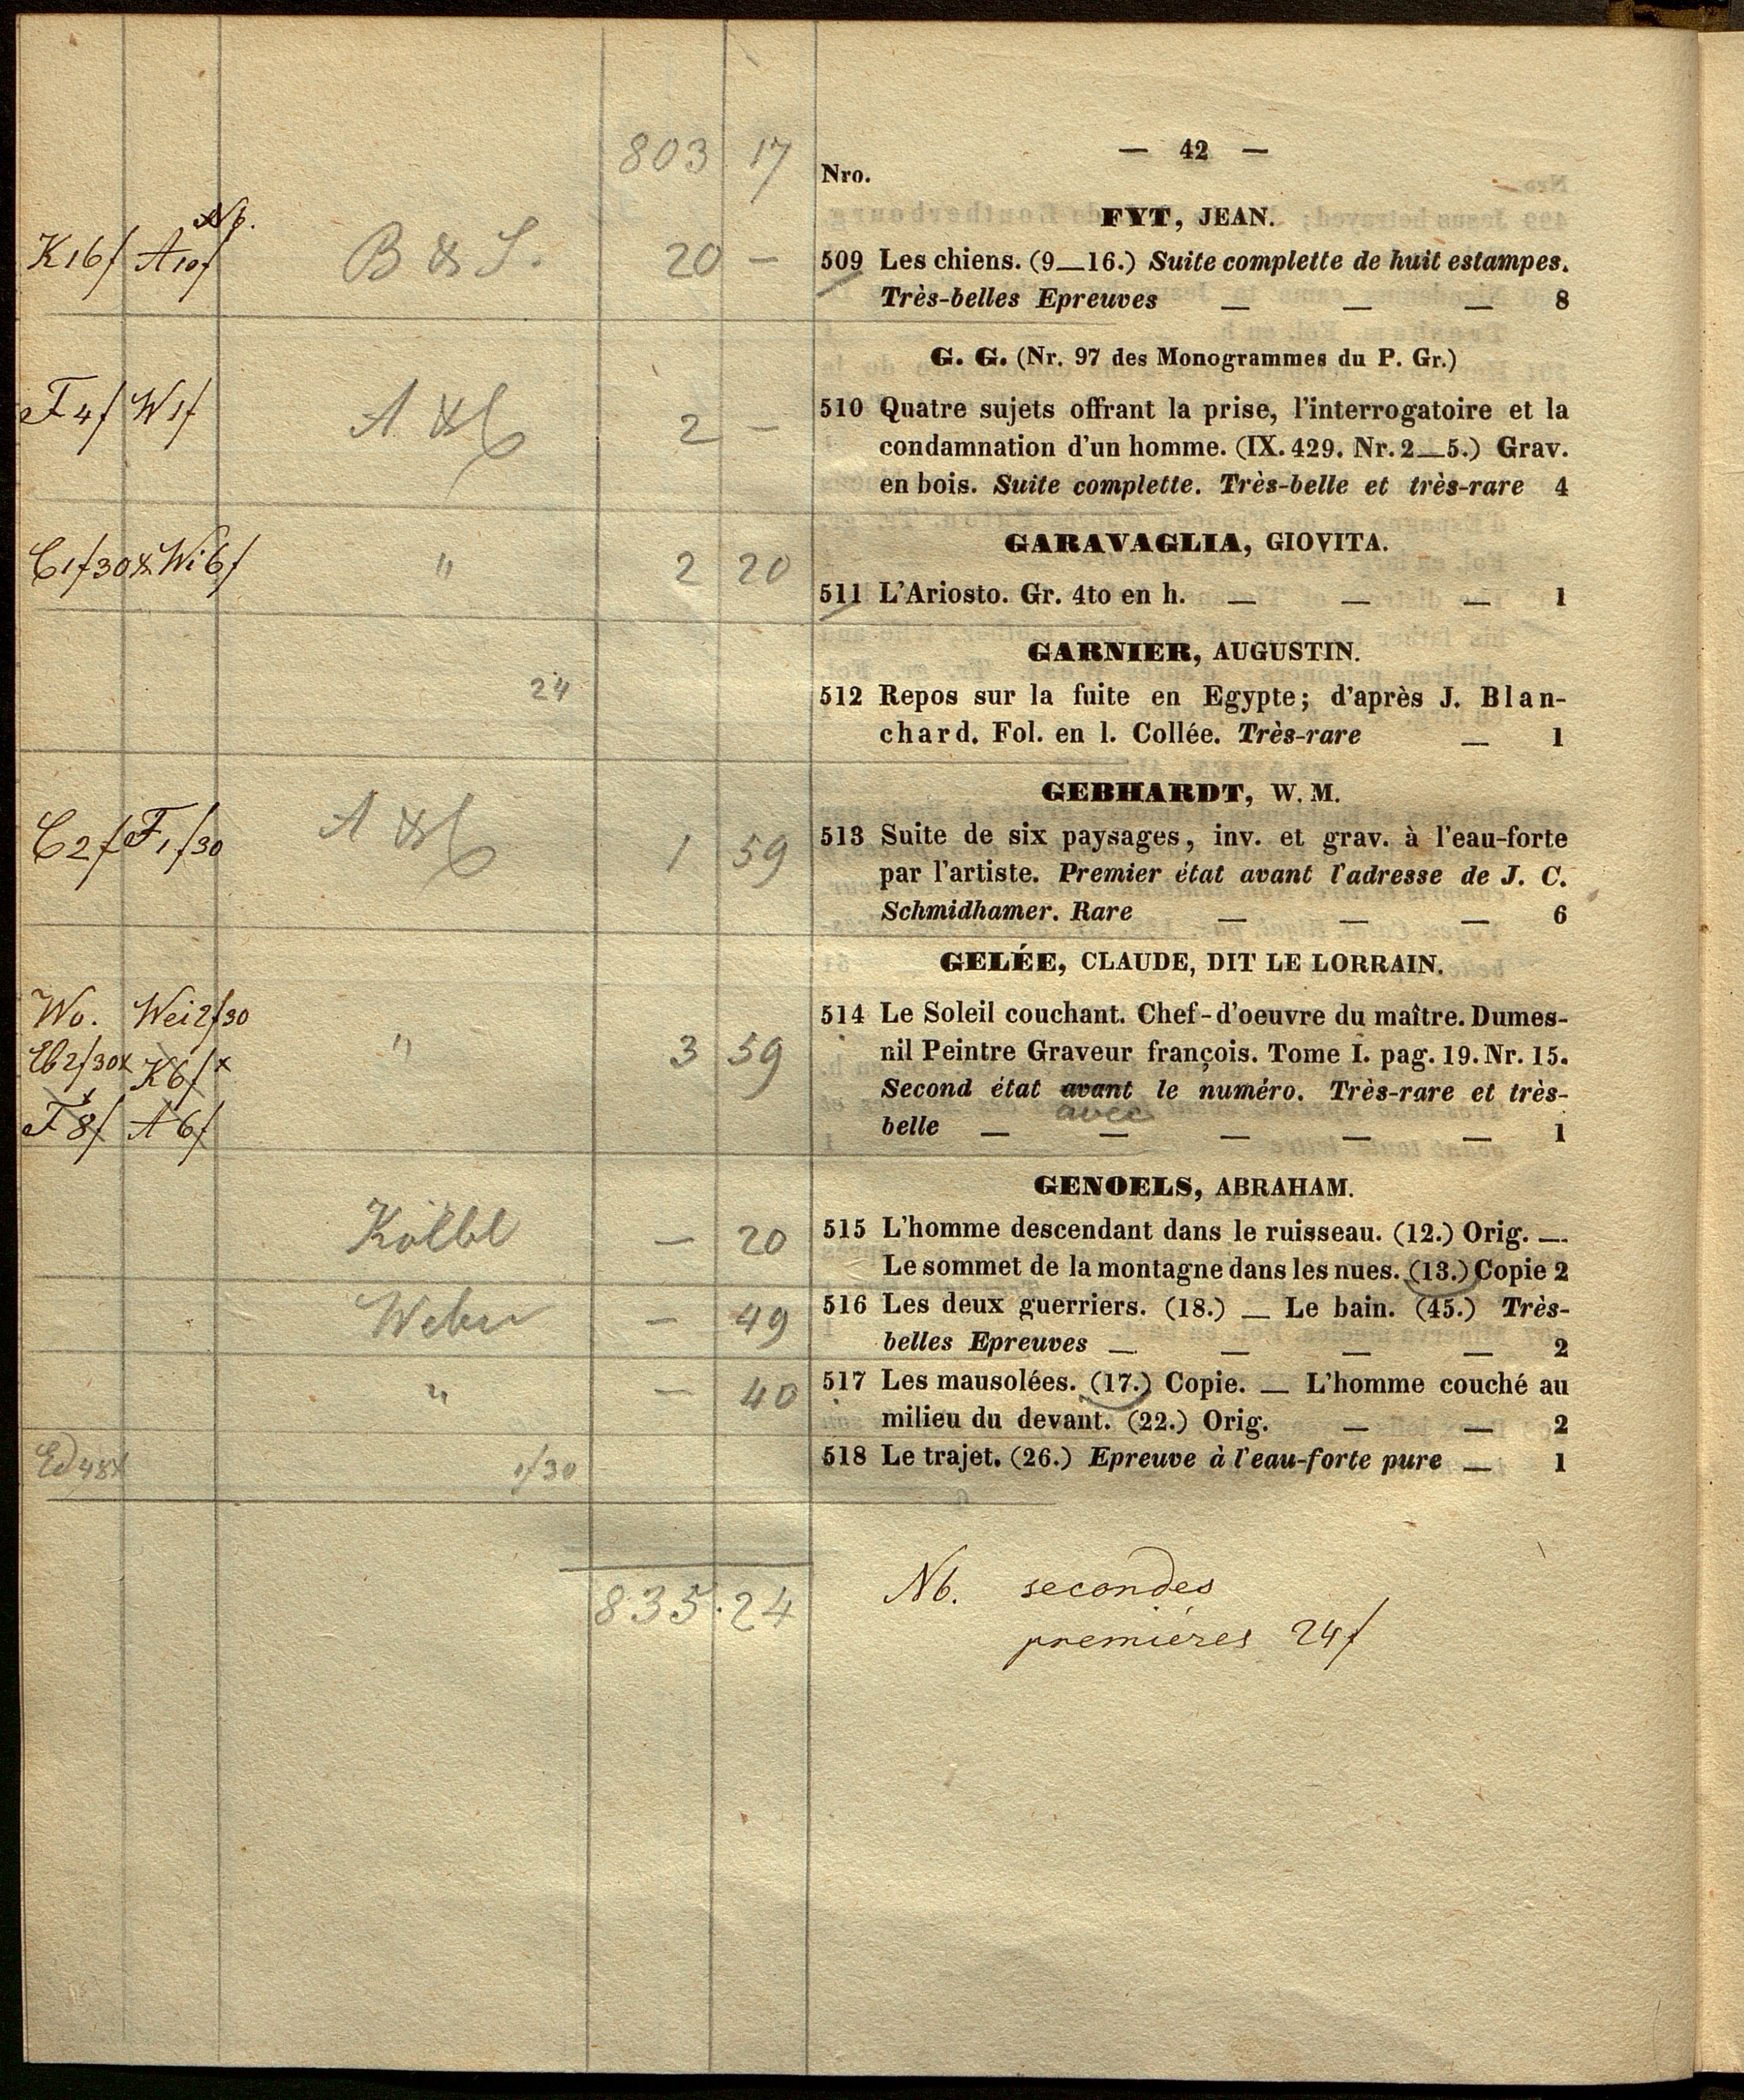 — 42 —
803 17
Nro.
FYT, JEAN.
Nb.
K 16f A 10f B & S. 20 —
509 Les chiens. (9—16.) Suite complette de huit estampes.
Très-belles Epreuves — — — 8
G. G. (Nr. 97 des Monogrammes du P. Gr.)
F 4f W 1f 2 —
510 Quatre sujets offrant la prise, l'interrogatoire et la
condamnation d'un homme. (IX. 429. Nr. 2—5.) Grav.
en bois. Suite complette. Très-belle et très-rare 4
GARAVAGLIA, GIOVITA.
C 1f30x Wi 6f " 2 20
511 L'Ariosto. Gr. 4to en h. — — — 1
GARNIER, AUGUSTIN.
24
512 Repos sur la fuite en Egypte; d'après J. Blan-
chard. Fol. en l. Collée. Très-rare — 1
GEBHARDT, W. M.
C 2f F 1f30 1 59
513 Suite de six paysages, inv. et grav. à l'eau-forte
par l'artiste. Premier état avant l'adresse de J. C.
Schmidhamer. Rare — — — 6
GELÉE, CLAUDE, DIT LE LORRAIN.
Wo. Wei 2f30
Eb 2f30x K 6f x " 3 59
F 8f A 6f
514 Le Soleil couchant. Chef-d'oeuvre du maître. Dumes-
nil Peintre Graveur françois. Tome I. pag. 19. Nr. 15.
Second état avant le numéro. Très-rare et très-
avec
belle — — — — — 1
GENOELS, ABRAHAM.
Kolbl — 20
515 L'homme descendant dans le ruisseau. (12.) Orig. —
Le sommet de la montagne dans les nues. (13.) Copie 2
Weber — 49
516 Les deux guerriers. (18.) — Le bain. (45.) Très-
belles Epreuves — — — — 2
" — 40
517 Les mausolées. (17.) Copie. — L'homme couché au
milieu du devant. (22.) Orig. — — 2
Ed 48x 1f30
518 Le trajet. (26.) Epreuve à l'eau-forte pure — 1
835 . 24
Nb. secondes
premières 24f